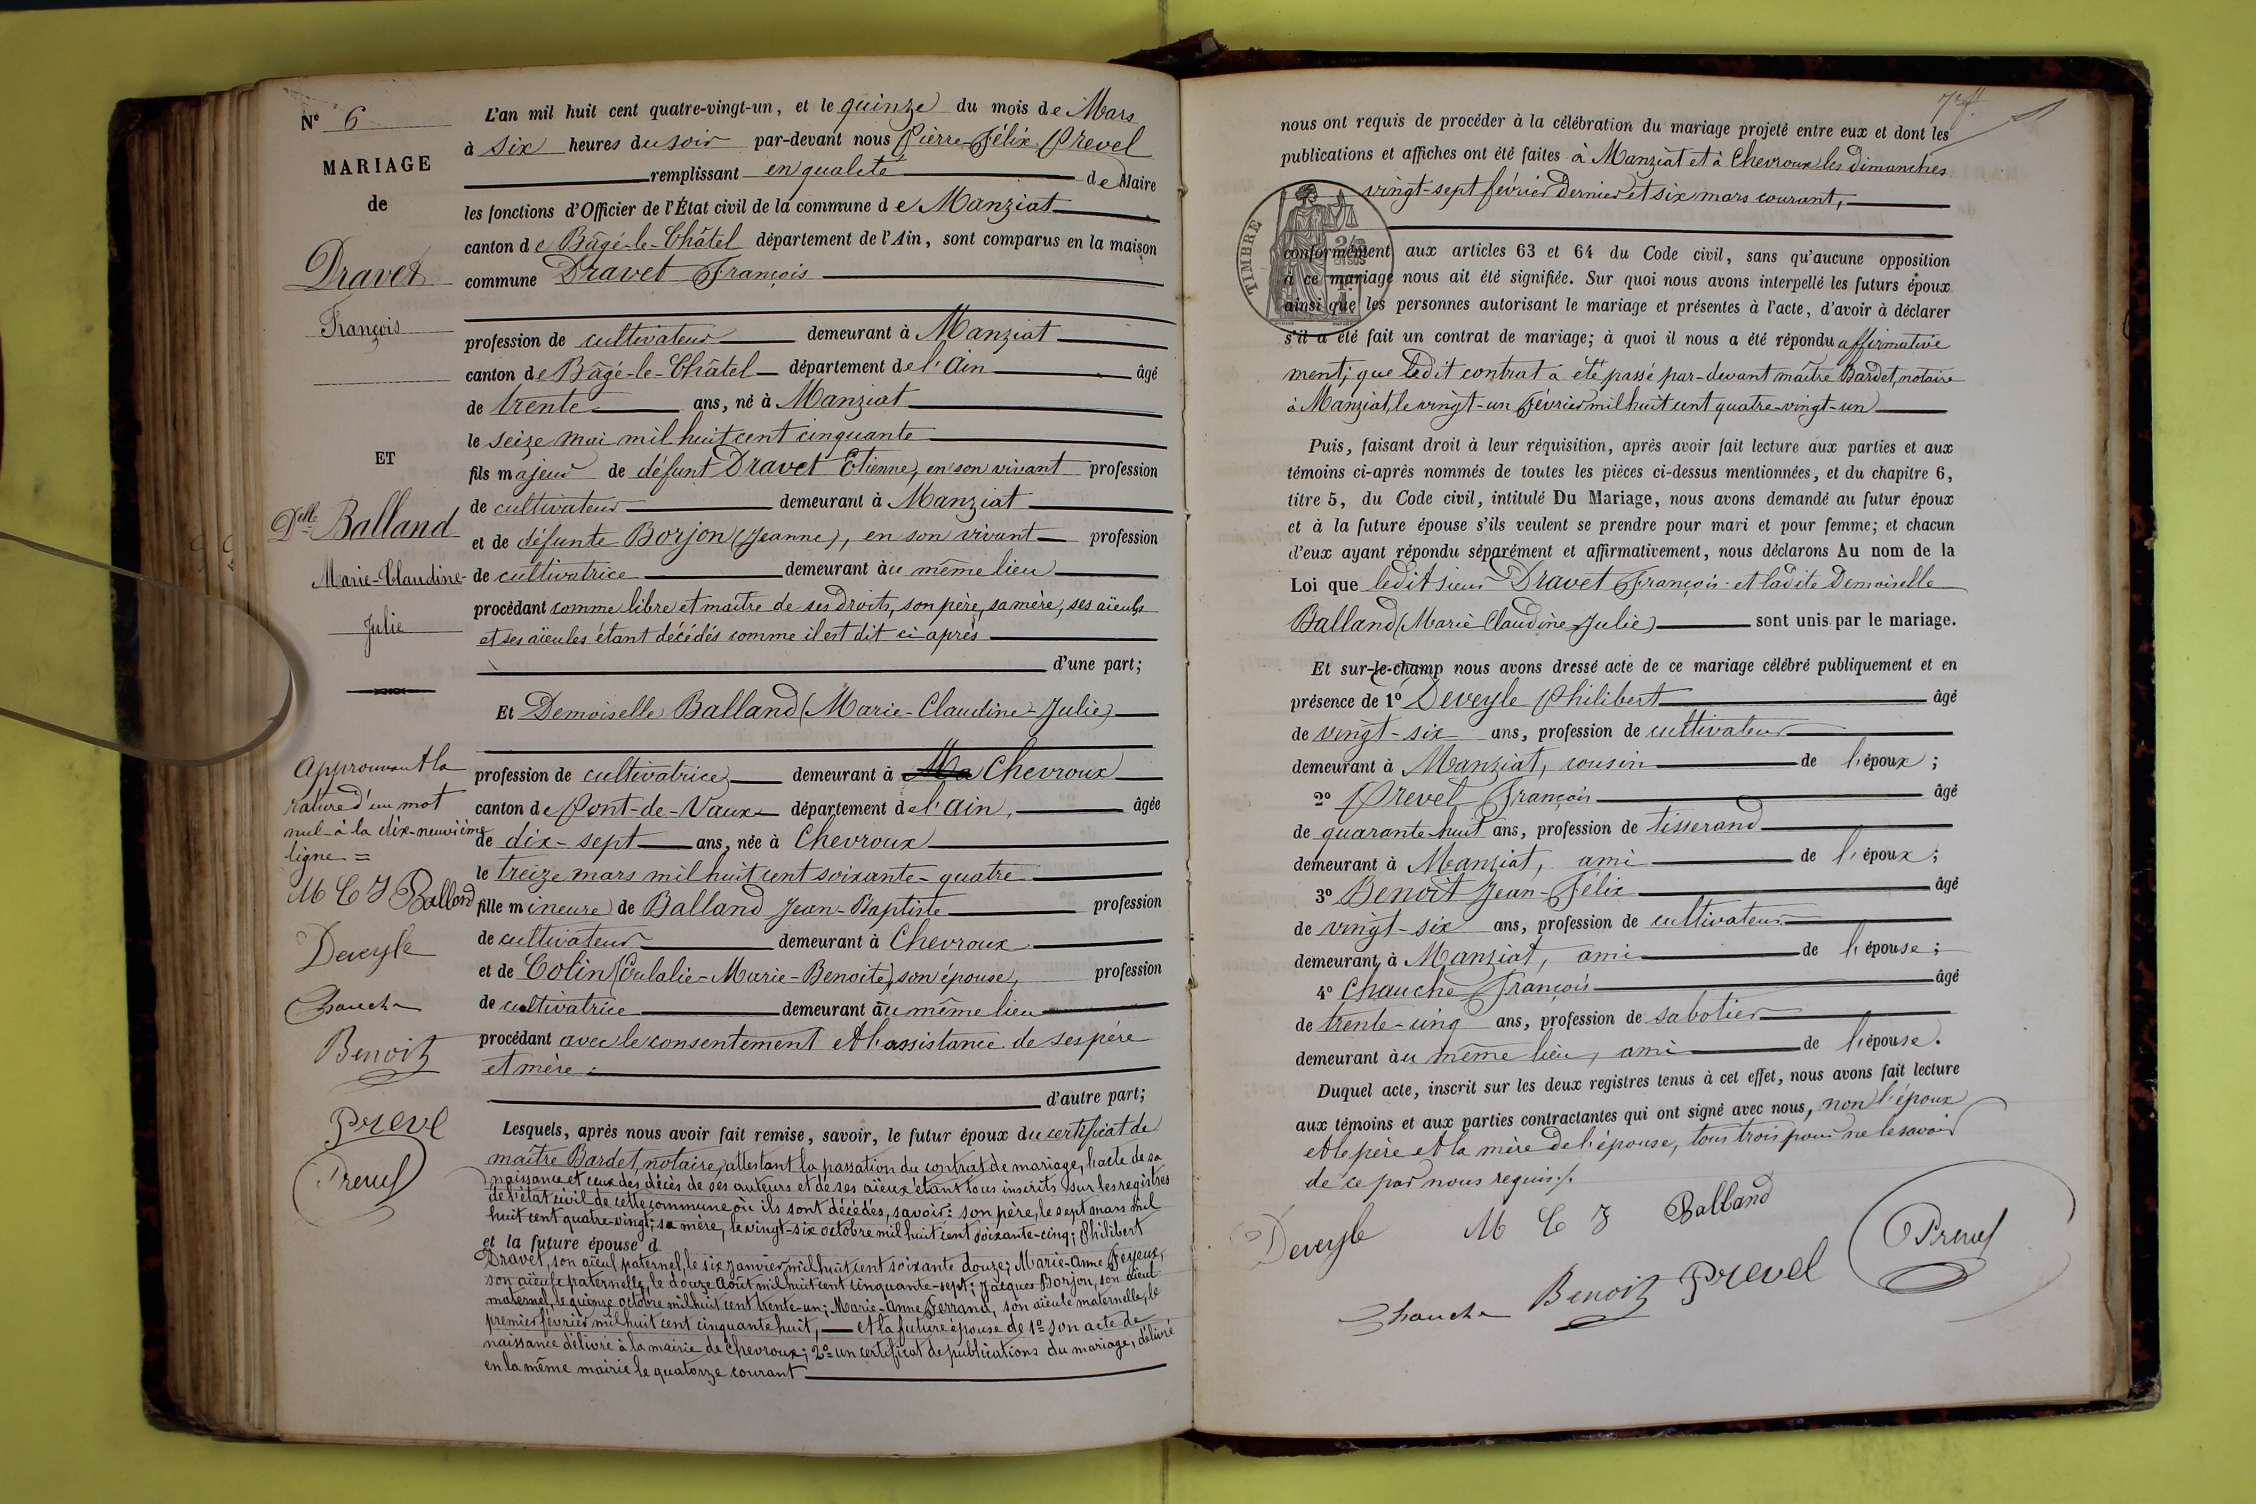 N° 6
MARIAGE
de
Dravet
François
ET
Delle Balland
Marie-Claudine-
Julie
Approuvant la
rature d'un mot
nul à la dix-neuvième
ligne =
M C J Balland
Deveyle
Chauche
Benoit
Prevel
Prevel
L'an mil huit cent quatre-vingt-un, et le quinze du mois de Mars
à six heures du soir par-devant nous Pierre-Félix Prevel
remplissant en qualité de Maire
les fonctions d'Officier de l'État civil de la commune de Manziat
canton de Bâgé-le-Châtel département de l'Ain, sont comparus en la maison
commune Dravet François
profession de cultivateur demeurant à Manziat
canton de Bâgé-le-Châtel département de l'Ain âgé
de trente ans, né à Manziat
le seize mai mil huit cent cinquante
fils majeur de défunt Dravet Etienne, en son vivant profession
de cultivateur demeurant à Manziat
et de défunte Borjon (Jeanne), en son vivant profession
de cultivatrice demeurant au même lieu
procédant comme libre et maître de ses droits, son père, sa mère, ses aïeuls
et ses aïeules étant décédés comme il est dit ci-après
d'une part;
Et Demoiselle Balland (Marie-Claudine-Julie)
profession de cultivatrice demeurant à Ma Chevroux
canton de Pont-de-Vaux département de l'Ain, âgée
de dix-sept ans, née à Chevroux
le treize mars mil huit cent soixante-quatre
fille mineure de Balland Jean-Baptiste profession
de cultivateur demeurant à Chevroux
et de Colin (Eulalie-Marie-Benoite), son épouse, profession
de cultivatrice demeurant au même lieu
procédant avec le consentement et l'assistance de ses père
et mère.
d'autre part;
Lesquels, après nous avoir fait remise, savoir, le futur époux du certificat de
maître Bardet, notaire, attestant la passation du contrat de mariage, l'acte de sa
naissance et ceux des décès de ses auteurs et de ses aïeux étant tous inscrits sur les registres
de l'état civil de cette commune où ils sont décédés, savoir: son père, le sept mars mil
huit cent quatre-vingt; sa mère, le vingt-six octobre mil huit cent soixante-cinq; Philibert
et la future épouse d
Dravet, son aïeul paternel, le six janvier mil huit cent soixante douze; Marie-Anne Feyeux,
son aïeule paternelle, le douze Août mil huit cent cinquante-sept; Jacques Borjon, son aïeul
maternel, le quinze octobre mil huit cent trente-un; Marie-Anne Ferrand, son aïeule maternelle, le
premier février mil huit cent cinquante huit, et la future épouse de 1° son acte de
naissance délivré à la mairie de Chevroux; 2° un certificat de publications du mariage, délivré
en la même mairie le quatorze courant
nous ont requis de procéder à la célébration du mariage projeté entre eux et dont les
publications et affiches ont été faites à Manziat et à Chevroux les dimanches
vingt-sept février dernier et six mars courant,
TIMBRE
conformément aux articles 63 et 64 du Code civil, sans qu'aucune opposition
à ce mariage nous ait été signifiée. Sur quoi nous avons interpellé les futurs époux
ainsi que les personnes autorisant le mariage et présentes à l'acte, d'avoir à déclarer
s'il a été fait un contrat de mariage; à quoi il nous a été répondu affirmative
ment; que ledit contrat a été passé par-devant maître Bardet, notaire
à Manziat, le vingt-un Février mil huit cent quatre-vingt-un
Puis, faisant droit à leur réquisition, après avoir fait lecture aux parties et aux
témoins ci-après nommés de toutes les pièces ci-dessus mentionnées, et du chapitre 6,
titre 5, du Code civil, intitulé Du Mariage, nous avons demandé au futur époux
et à la future épouse s'ils veulent se prendre pour mari et pour femme; et chacun
d'eux ayant répondu séparément et affirmativement, nous déclarons Au nom de la
Loi que ledit sieur Dravet François et ladite Demoiselle
Balland (Marie Claudine Julie) sont unis par le mariage.
Et sur-le-champ nous avons dressé acte de ce mariage célébré publiquement et en
présence de 1° Deveyle Philibert âgé
de vingt-six ans, profession de cultivateur
demeurant à Manziat, cousin de l'époux;
2° Prevel François âgé
de quarante-huit ans, profession de tisserand
demeurant à Manziat, ami de l'époux;
3° Benoit Jean-Félix âgé
de vingt-six ans, profession de cultivateur
demeurant à Manziat, ami de l'épouse;
4° Chauche François âgé
de trente-cinq ans, profession de sabotier
demeurant au même lieu, ami de l'épouse.
Duquel acte, inscrit sur les deux registres tenus à cet effet, nous avons fait lecture
aux témoins et aux parties contractantes qui ont signé avec nous, non l'époux
et le père et la mère de l'épouse, tous trois pour ne le savoir
de ce par nous requis.
Deveyle M C J Balland
Chauche Benoit Prevel Prevel